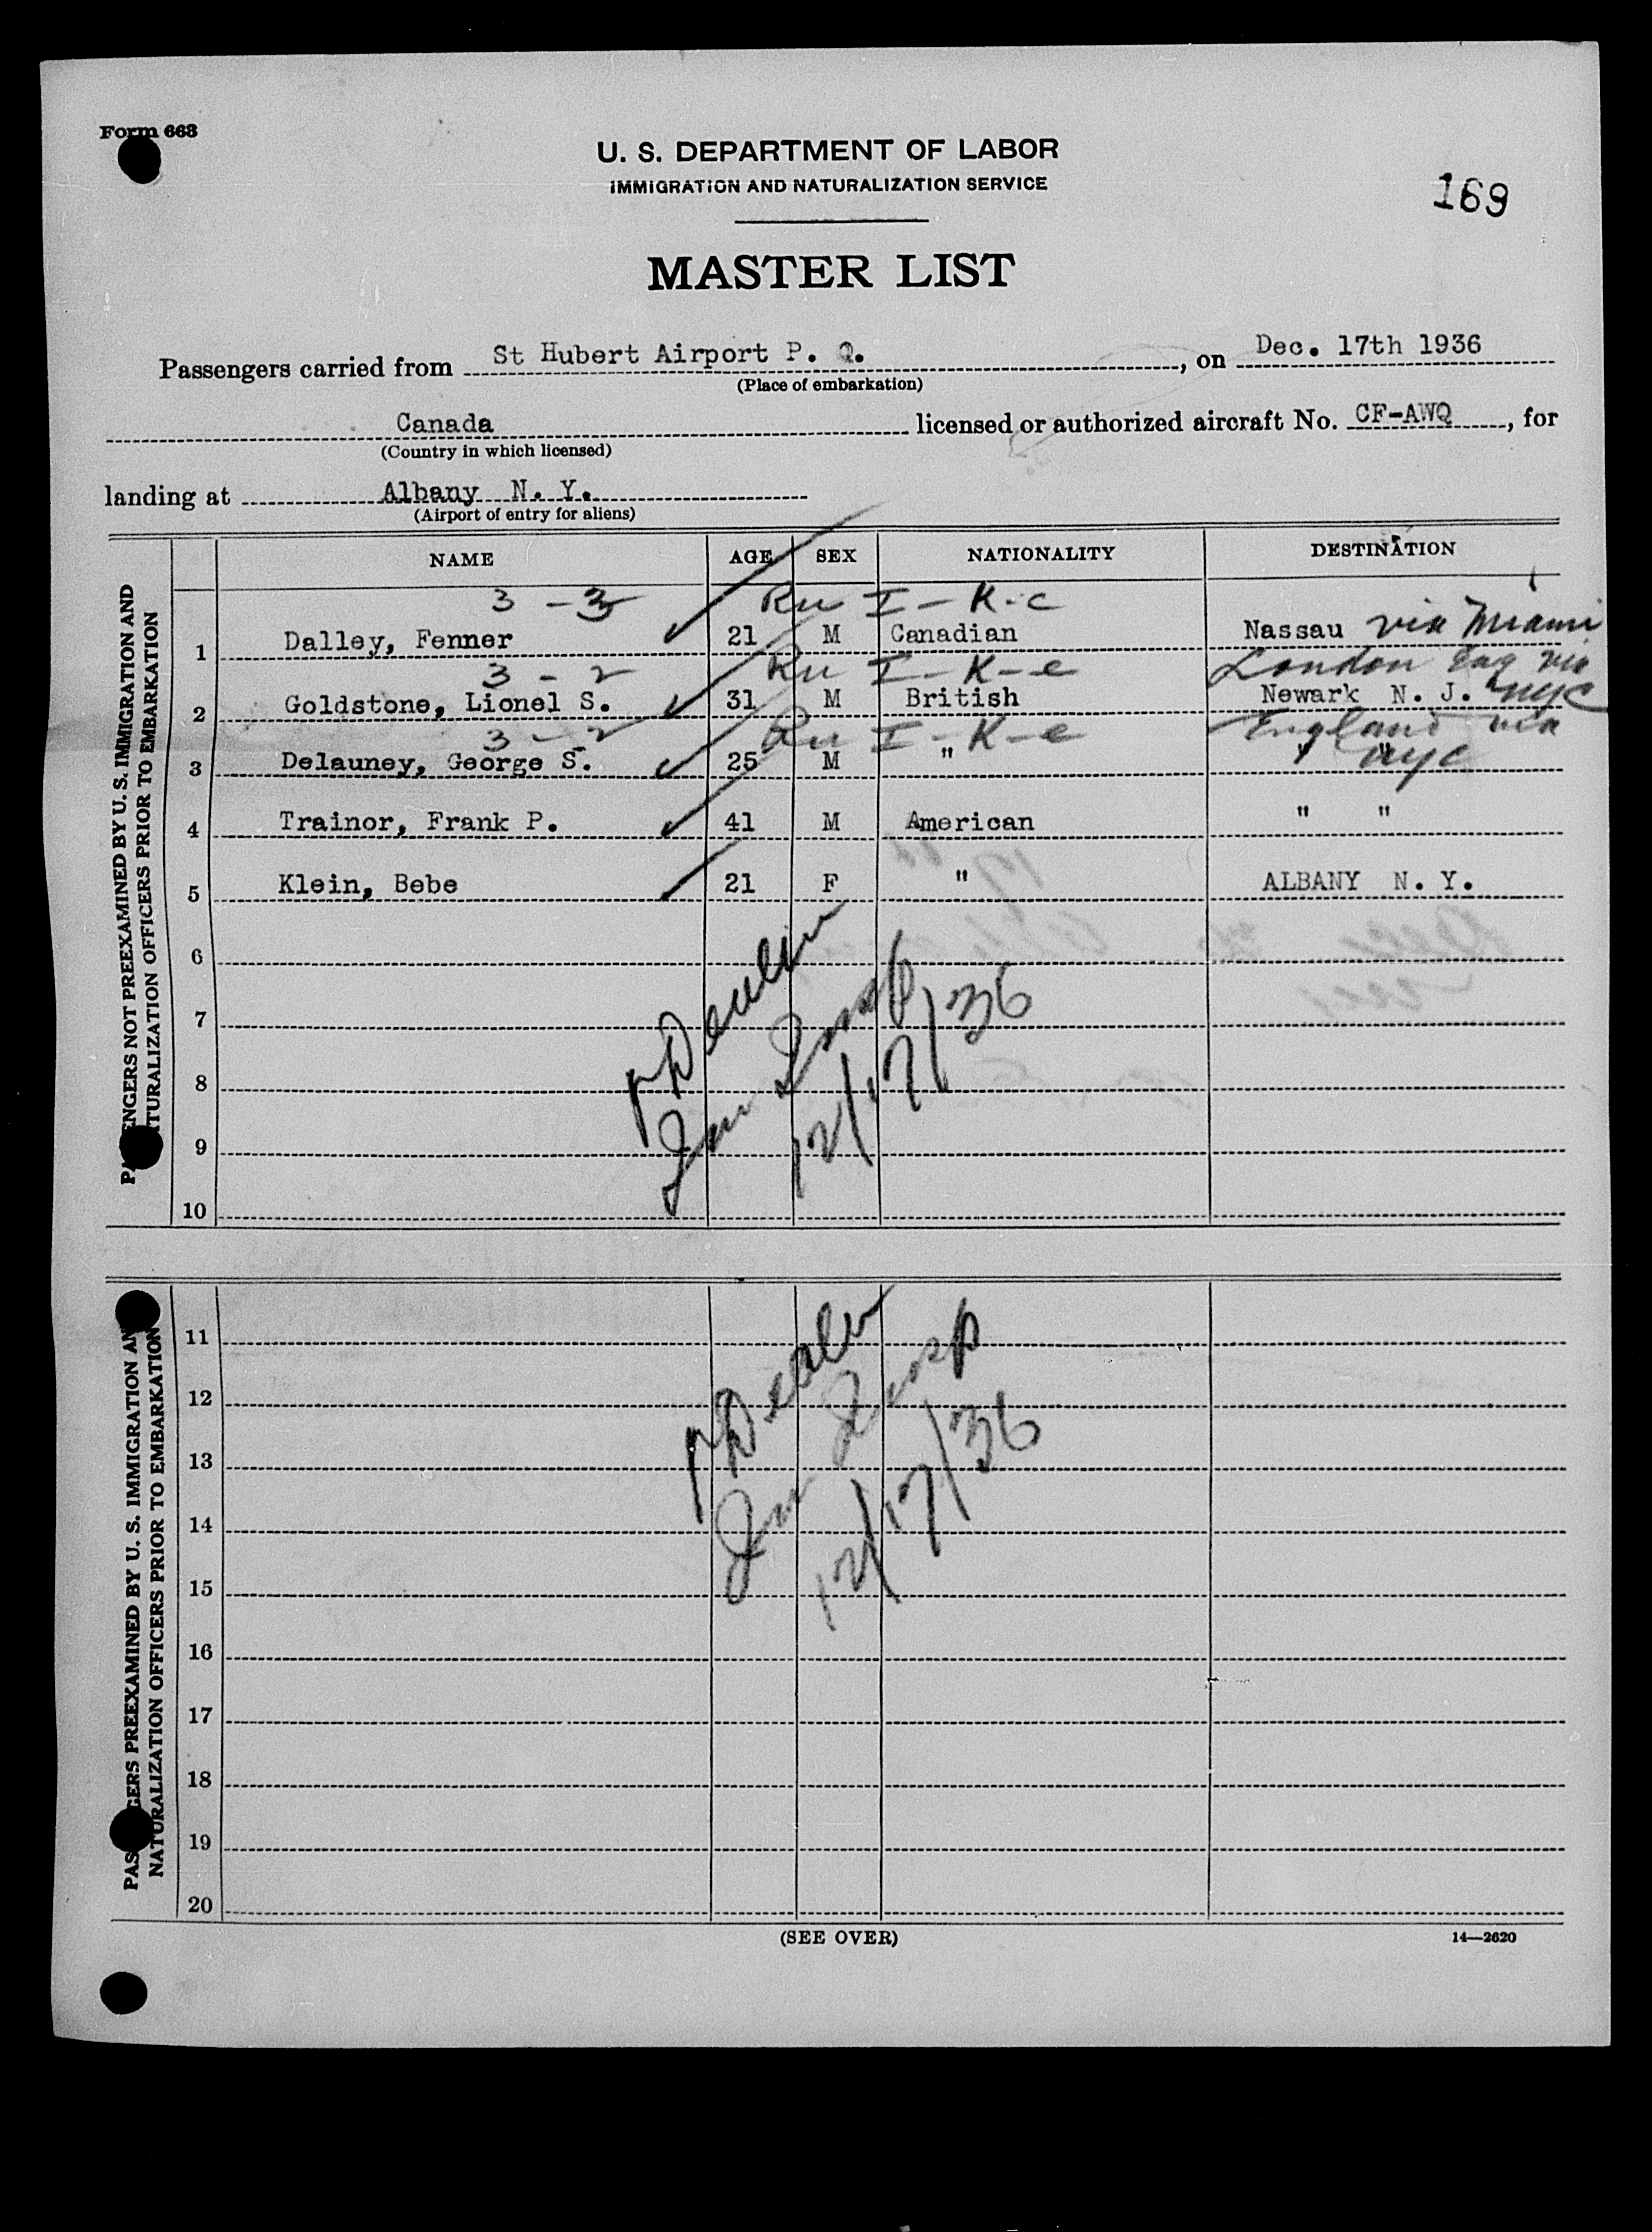 Form 663
U. S. DEPARTMENT OF LABOR
IMMIGRATION AND NATURALIZATION SERVICE
169
MASTER LIST
Passengers carried from St Hubert Airport P. Q., on Dec. 17th 1936
(Place of embarkation)
Canada licensed or authorized aircraft No. CF-AWQ, for
(Country in which licensed)
landing at Albany N. Y.
(Airport of entry for aliens)
NAME AGE SEX NATIONALITY DESTINATION
PASSENGERS NOT PREEXAMINED BY U. S. IMMIGRATION AND
NATURALIZATION OFFICERS PRIOR TO EMBARKATION
3 - 3 I - K - c
1 Dalley, Fenner 21 M Canadian Nassau via Miami
3 - 2 I - K - e London Eng via
2 Goldstone, Lionel S. 31 M British Newark N. J. NYC
3 - 2 I - K - e England via
3 Delauney, George S. 25 M " " " NYC
4 Trainor, Frank P. 41 M American " "
5 Klein, Bebe 21 F " ALBANY N. Y.
6
7
8
9
10
12/17/36
PASSENGERS PREEXAMINED BY U. S. IMMIGRATION AND
NATURALIZATION OFFICERS PRIOR TO EMBARKATION
11
12
13
14
15
16
17
18
19
20
12/17/36
(SEE OVER)
14—2620